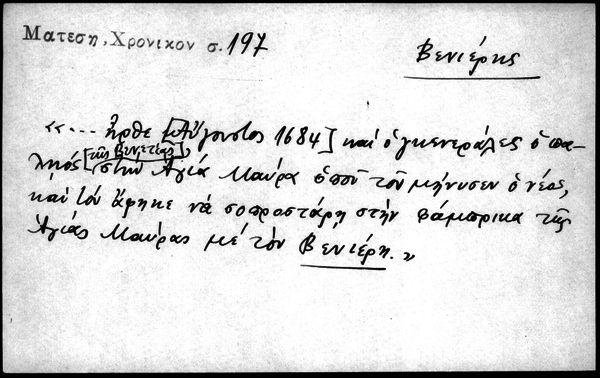 Ματεση, Χρονικον σ. 197
Βενιέρης
«... ἦρθε [Αὔγουστος 1684] καὶ ὁ γκενεράλες ὁ πα-
ληός [τῆς Βενετίας] στὴν Ἁγία Μαύρα ὁποῦ τὸν μήνυσεν ὁ νέος,
καὶ τὸν ἄφηκε νὰ σοπραστάρῃ στὴν φάμπρικα τῆς
Ἁγίας Μαύρας μὲ τὸν Βενιέρη.»